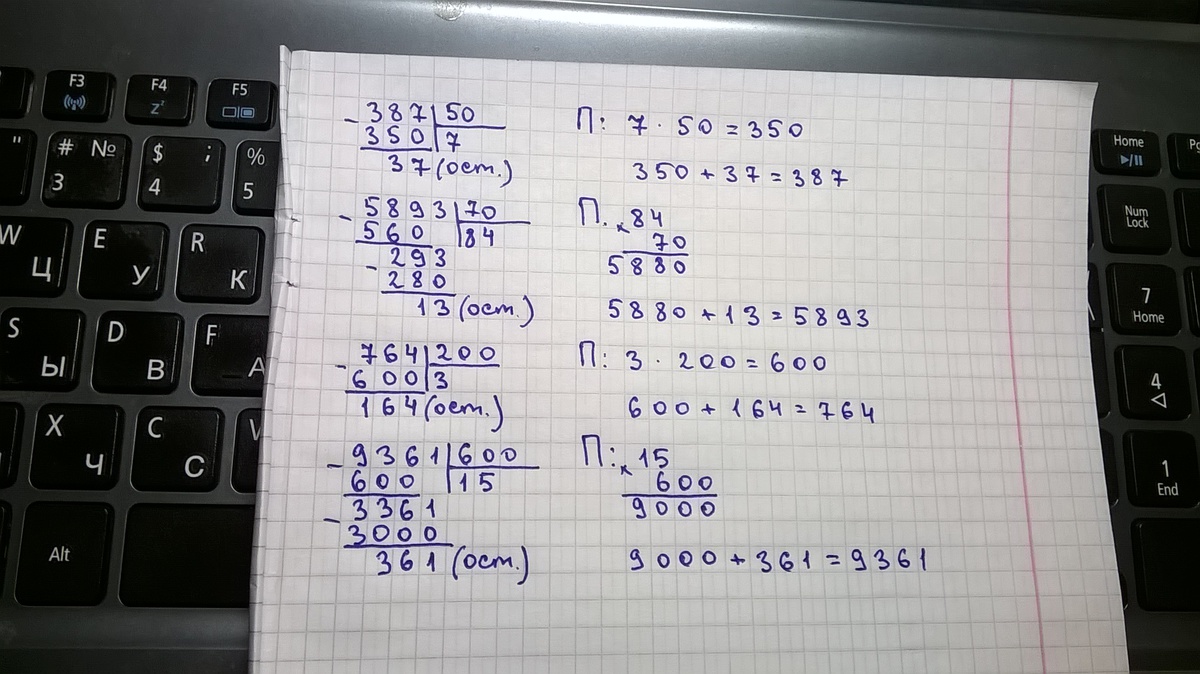 387 50 П: 7 · 50 = 350
350 7
37 (ост.) 350 + 37 = 387
5893 70 П. × 84
560 84 70
293 5880
280
13 (ост.) 5880 + 13 = 5893
764 200 П: 3 · 200 = 600
600 3
164 (ост.) 600 + 164 = 764
9361 600 П: × 15
600 15 600
3361 9000
3000
361 (ост.) 9000 + 361 = 9361
F3
F4
F5
z
"
# № 3
$ ; 4
% 5
W Ц
E У
R К
S Ы
D В
F А
X Ч
C С
Alt
Home
Pg
Num Lock
7 Home
4
1 End